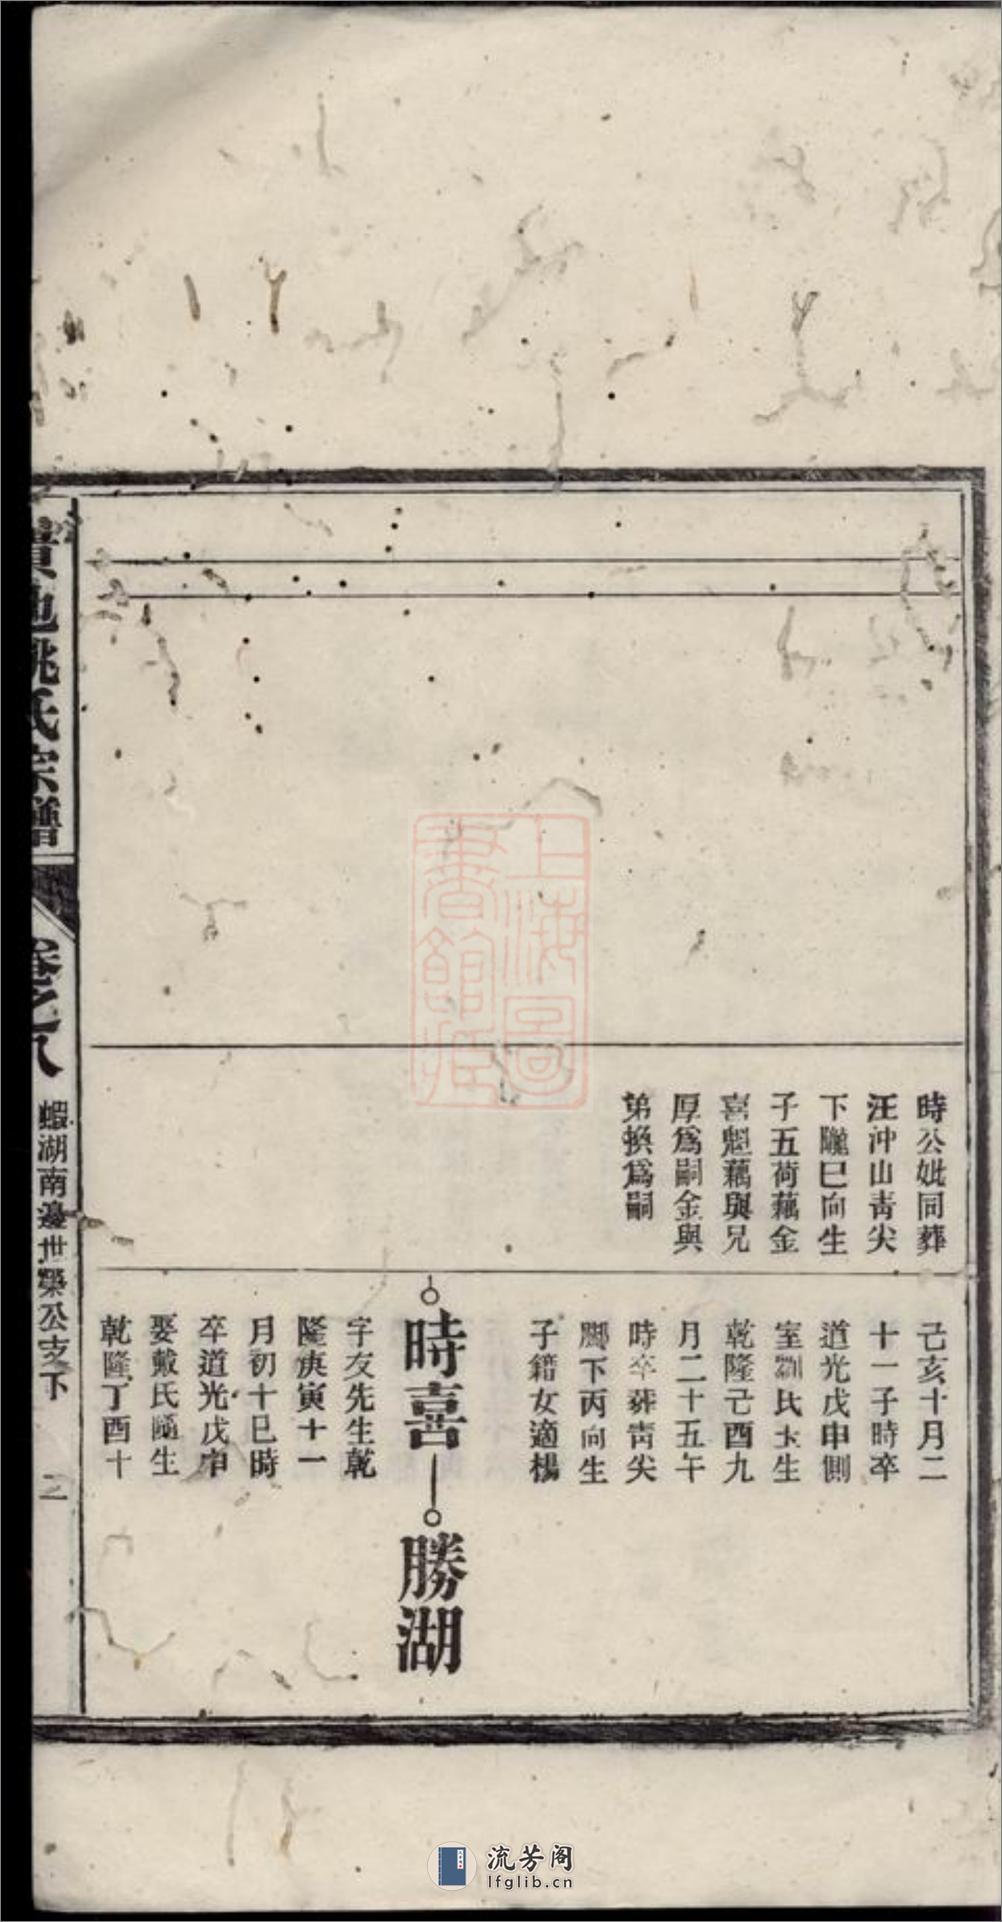 時公妣同葬
汪沖山青尖
下隴巳向生
子五荷藕金
喜魁藕與兄
厚為嗣金與
弟換為嗣
己亥十月二
十一子時卒
道光戊申側
室劉氏玉生
乾隆己酉九
月二十五午
時卒葬青尖
脚下丙向生
子籍女適楊
時喜
勝湖
字友先生乾
隆庚寅十一
月初十巳時
卒道光戊申
娶戴氏隨生
乾隆丁酉十
貴池姚氏宗譜
卷之八
蝦湖南邊世榮公支下
二
上海圖
書館藏
流芳阁
lfglib.cn